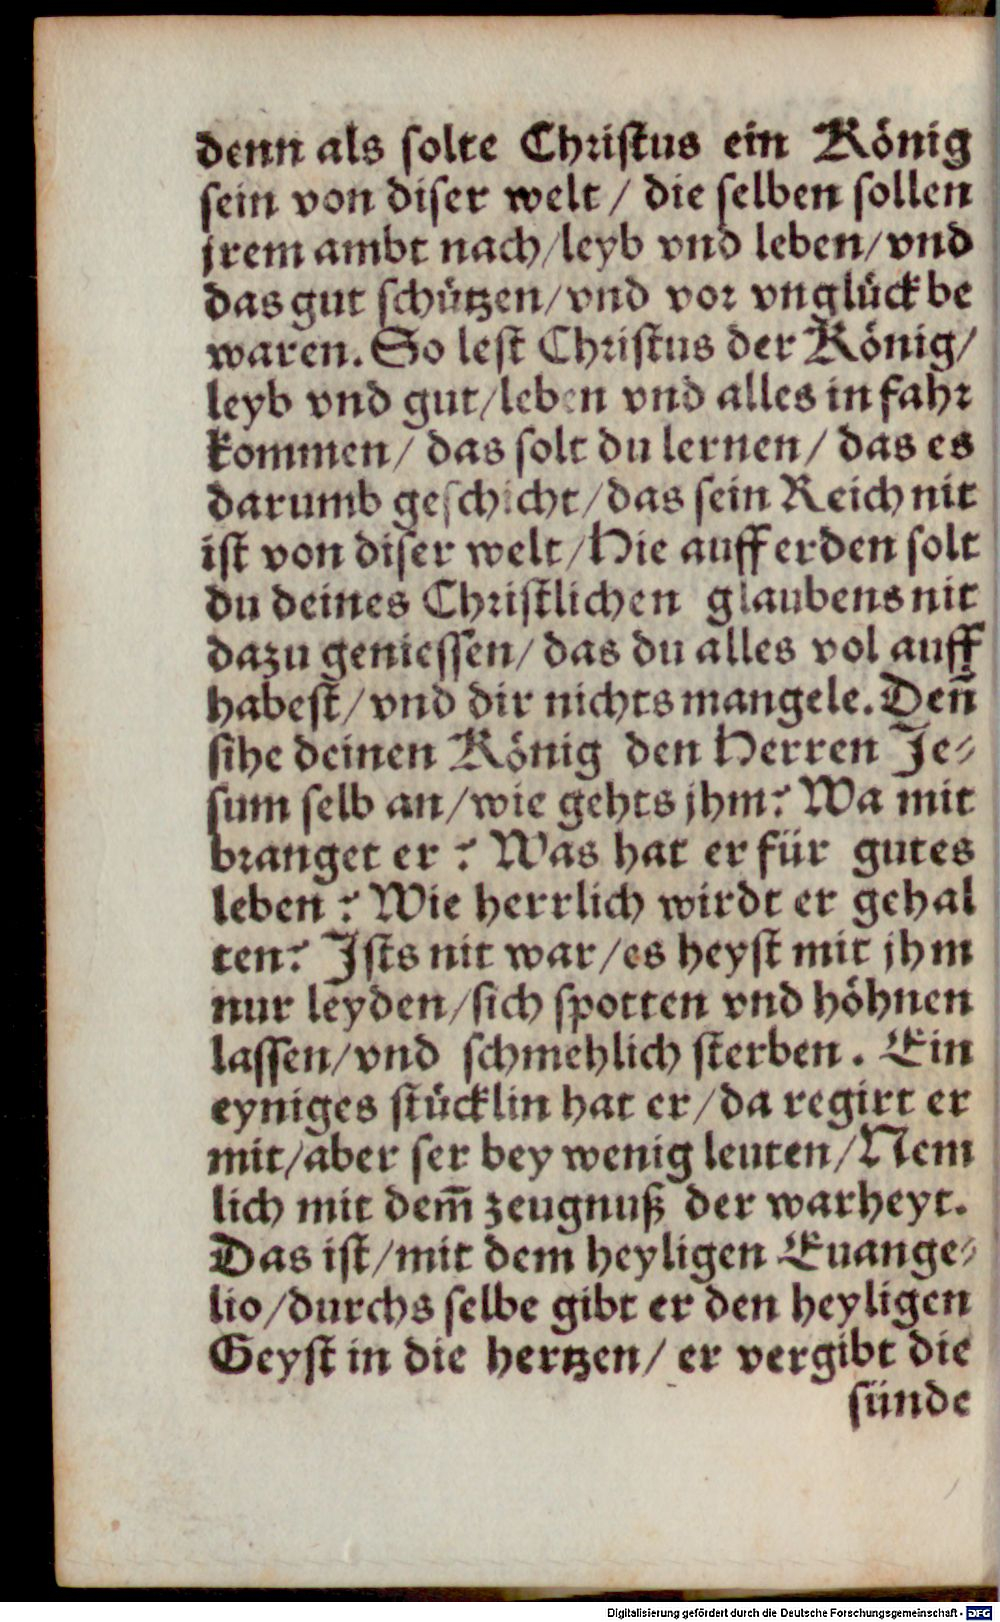 denn als ſolte Chriſtus ein König
ſein von diſer welt / die ſelben ſollen
jrem ambt nach/leyb vnd leben/vnd
das gut ſchützen/vnd vor vnglück be
waren. So leſt Chriſtus der König/
leyb vnd gut/leben vnd alles in fahr
kommen/ das ſolt du lernen/ das es
darumb geſchicht/das ſein Reich nit
iſt von diſer welt/Hie auff erden ſolt
du deines Chriſtlichen glaubens nit
dazu genieſſen/das du alles vol auff
habeſt/vnd dir nichts mangele. Deñ
ſihe deinen König den Herren Je⸗
ſum ſelb an/wie gehts jhm? Wa mit
branget er ? Was hat er für gutes
leben ? Wie herrlich wirdt er gehal
ten? Iſts nit war/es heyſt mit jhm
nur leyden/ſich ſpotten vnd höhnen
laſſen/vnd ſchmehlich ſterben . Ein
eyniges ſtücklin hat er/da regirt er
mit/aber ſer bey wenig leuten/Nem
lich mit dem̃ zeugnuß der warheyt.
Das iſt/mit dem heyligen Euange⸗
lio/durchs ſelbe gibt er den heyligen
Geyſt in die hertzen/ er vergibt die
ſünde
Digitalisierung gefördert durch die Deutsche Forschungsgemeinschaft - DFG